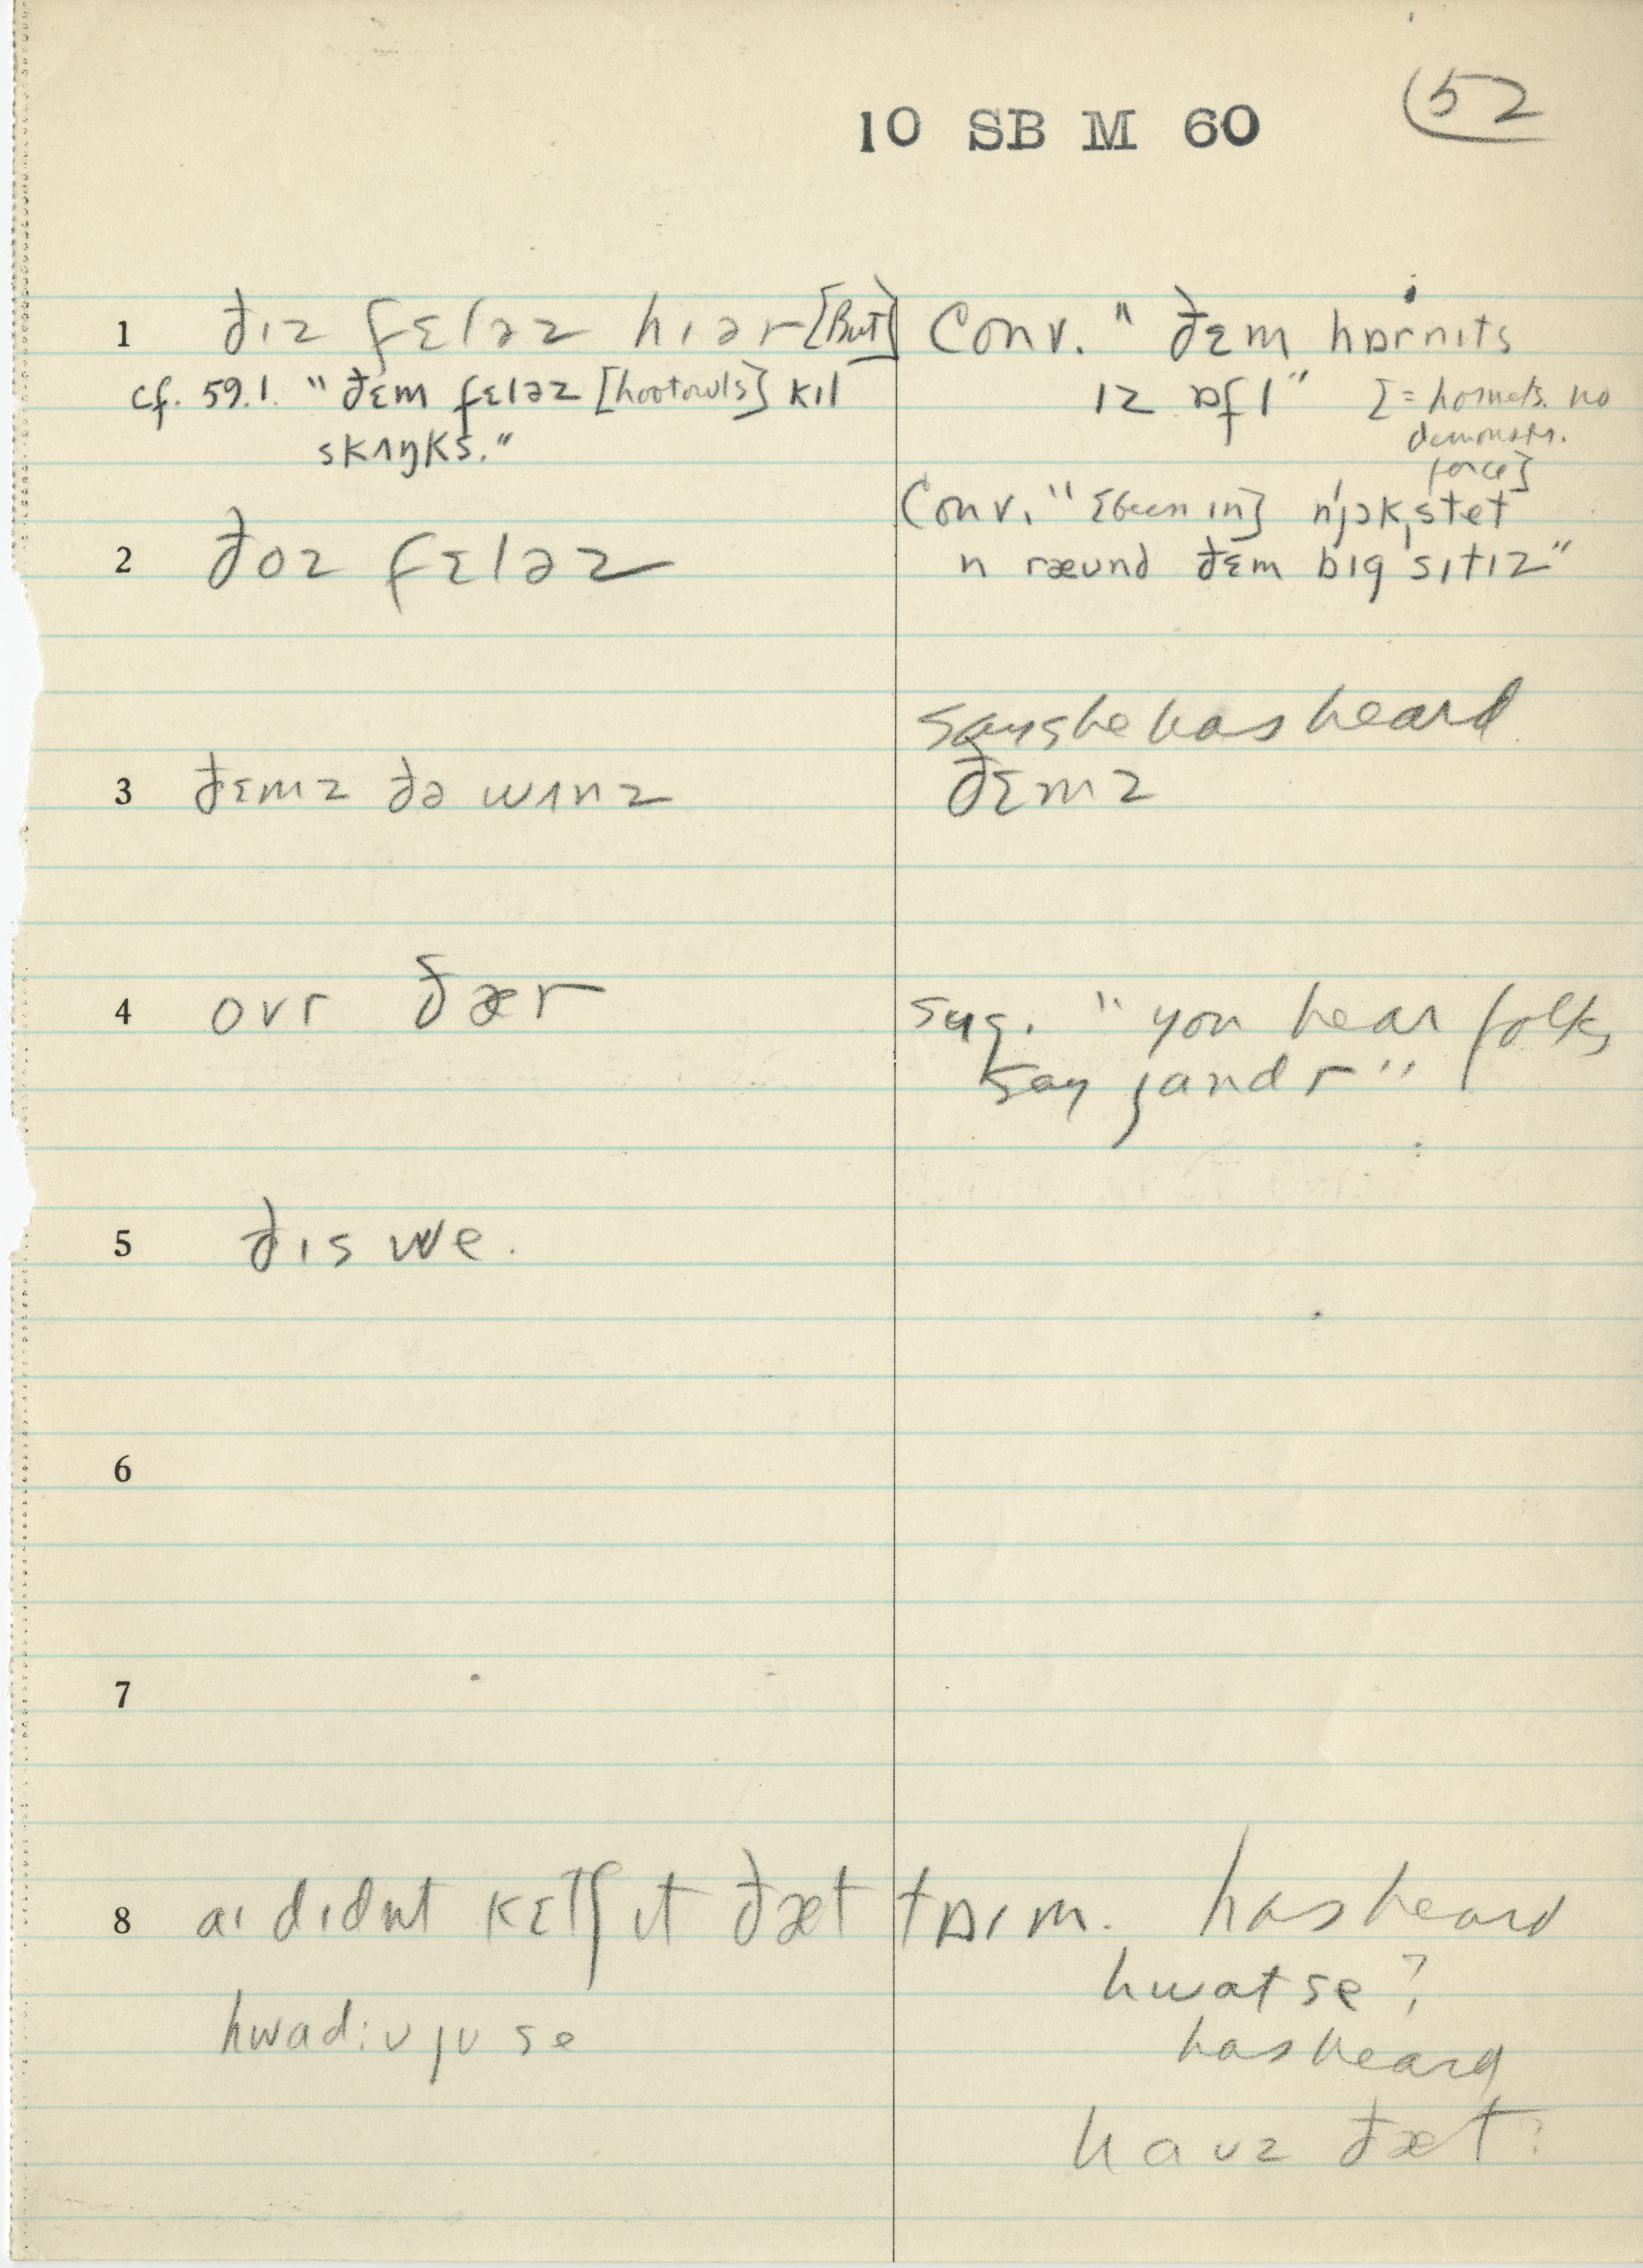 10 SB M 60
52
1 ðɪz fɛləz hɪər [But] Conv. "ðɛm hɒrnɪts
cf. 59.1. "ðɛm fɛləz [hootowls] kɪl ɪz ɒfl" [= hornets. no
skʌŋks." demonstr.
force]
Conv. "[been in] njɔk stet
2 ðoz fɛləz n ræund ðɛm bɪg sɪtɪz"
says he has heard
3 ðɛmz ðə wʌnz ðɛmz
4 ovr ðær sug. "you hear folks
say jandr"
5 ðɪs we.
6
7
8 aɪ dɪdnt kɛtʃ ɪt ðæt tɒɪm. has heard
hwat se?
hwad:ʊjʊ se has heard
haʊz ðæt?